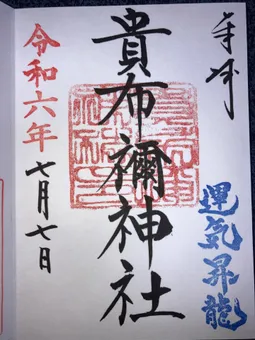 奉拝
貴布禰神社
運気昇龍
令和六年
七月七日